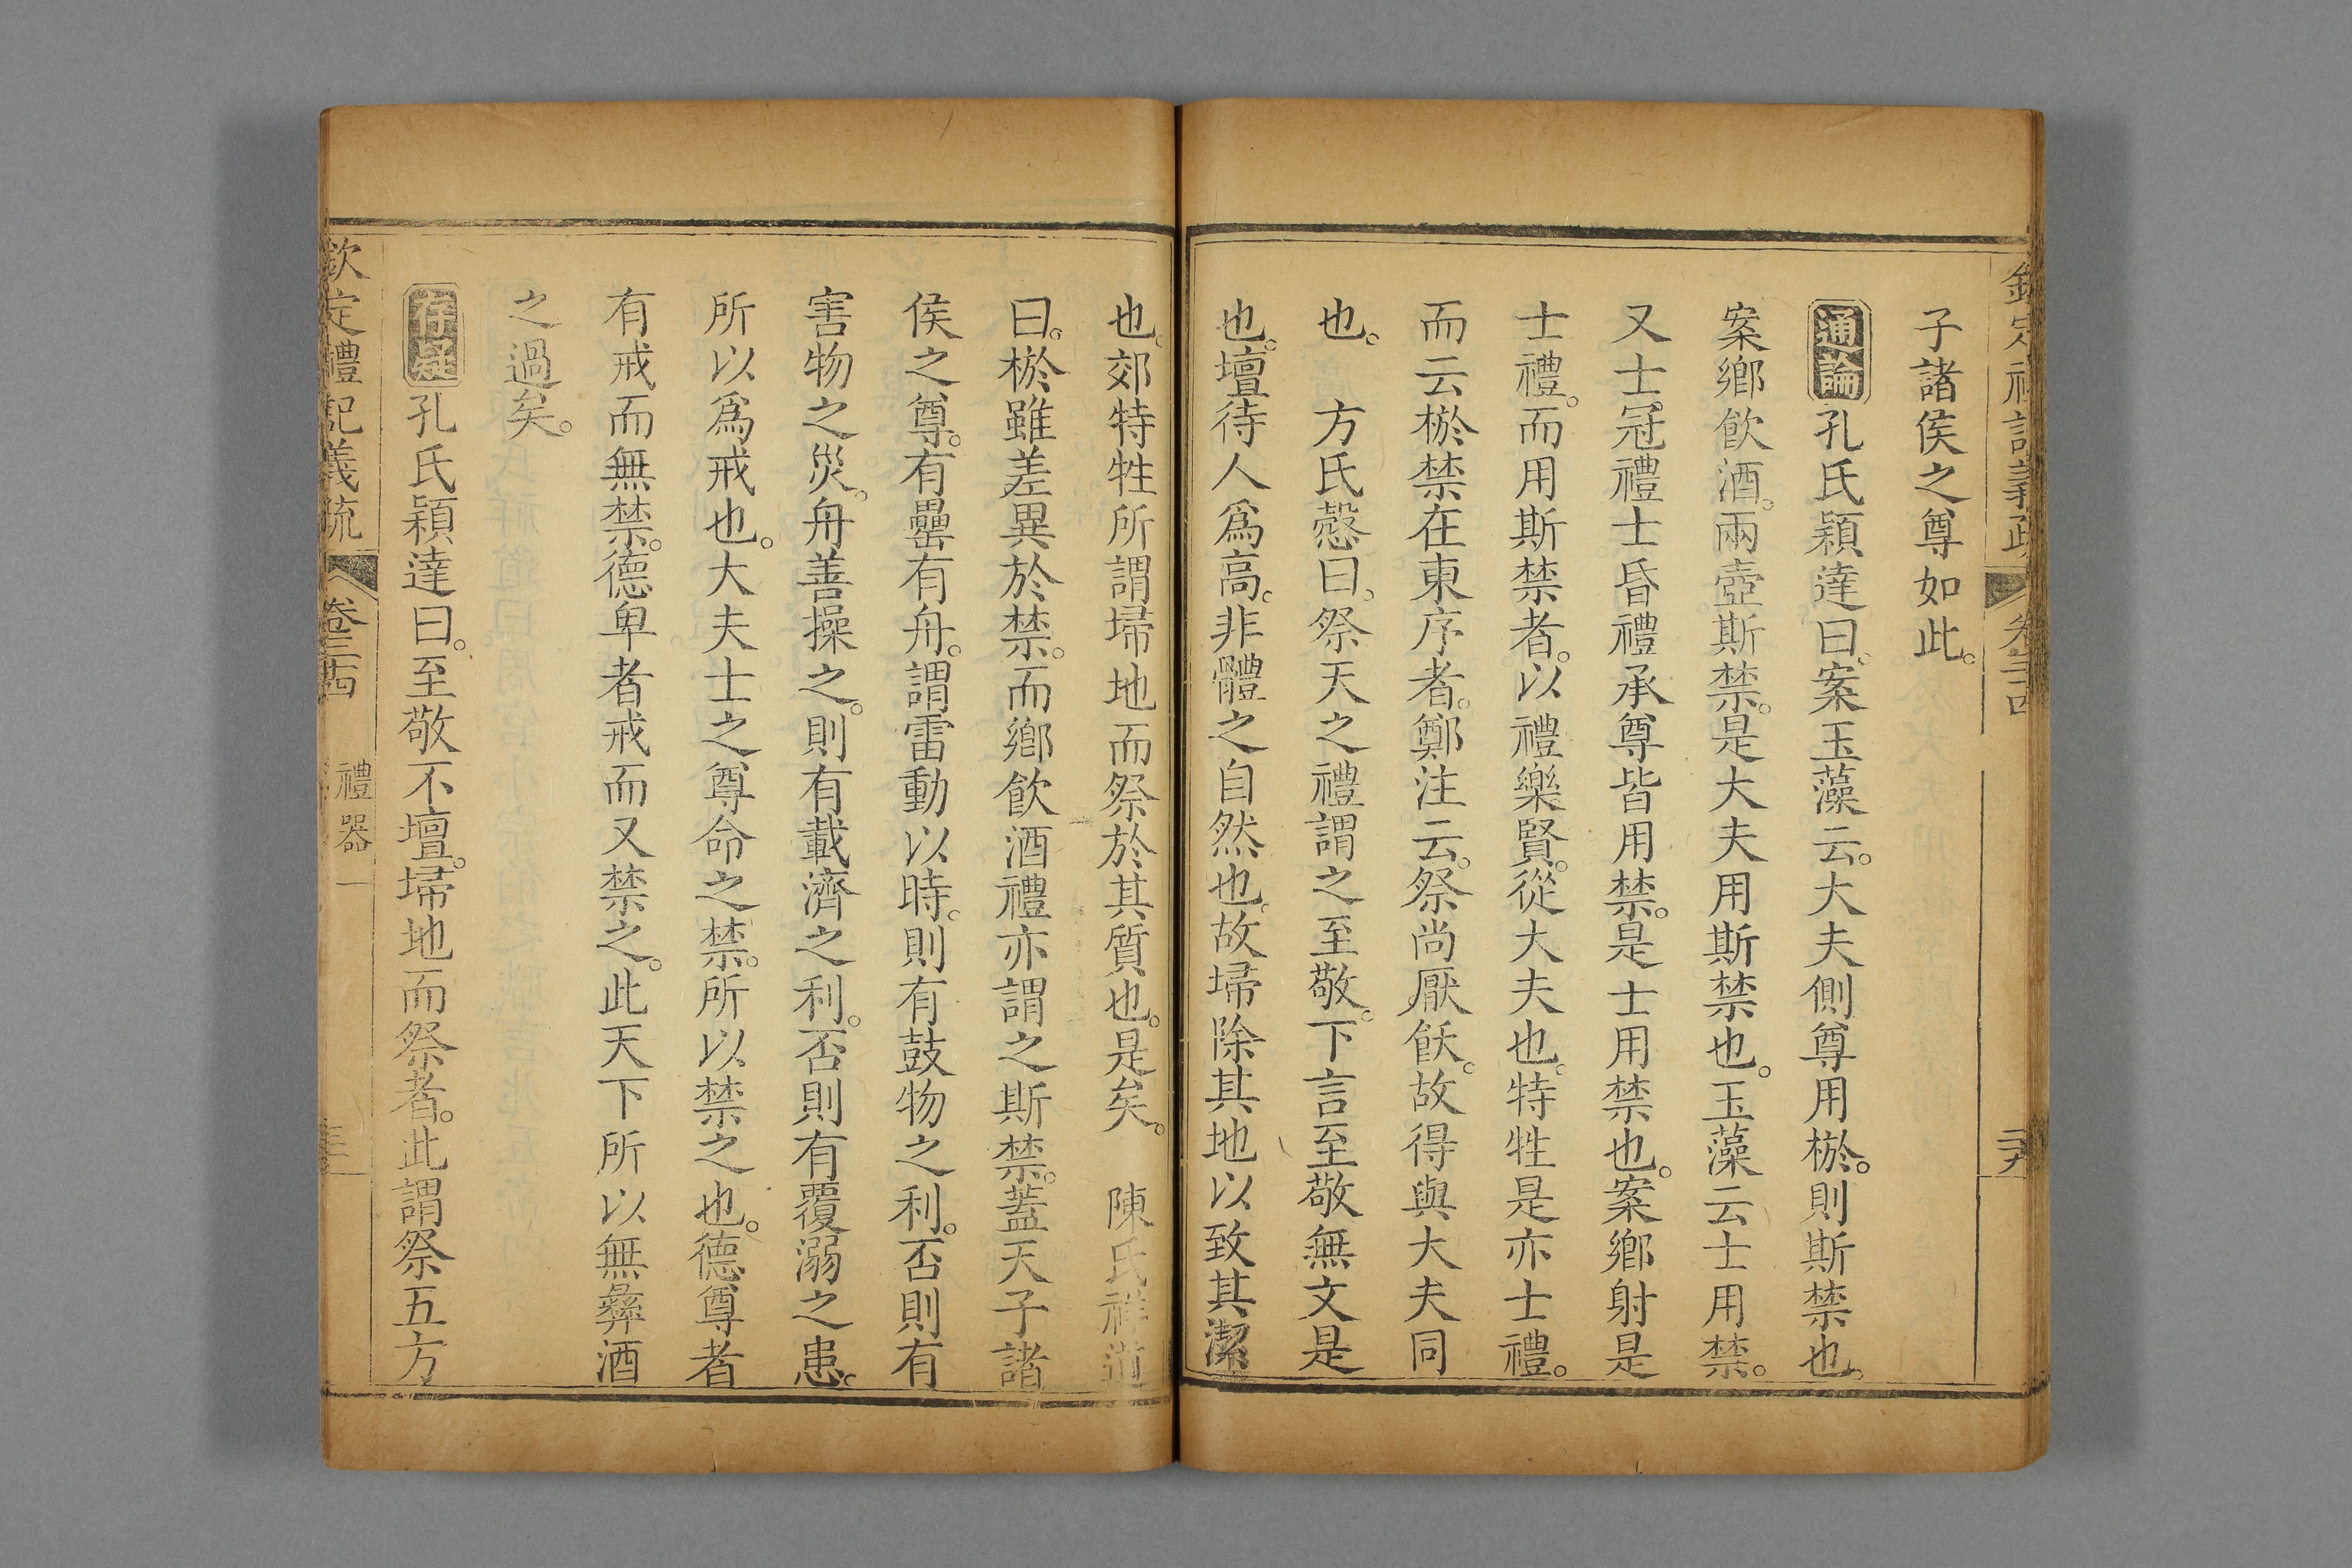 欽定禮記義疏 卷三十四 二九
子諸侯之尊如此。
通論孔氏穎達曰。案玉藻云。大夫側尊用棜。則斯禁也。
案鄉飲酒。兩壺斯禁。是大夫用斯禁也。玉藻云士用禁。
又士冠禮士昏禮承尊皆用禁。是士用禁也。案鄉射是
士禮。而用斯禁者。以禮樂賢。從大夫也。特牲是亦士禮。
而云棜禁在東序者。鄭注云。祭尚厭飫。故得與大夫同
也。 方氏慤曰。祭天之禮謂之至敬。下言至敬無文是
也。壇待人爲高。非體之自然也。故埽除其地以致其潔
也。郊特牲所謂埽地而祭於其質也。是矣。 陳氏祥道
曰。棜雖差異於禁。而鄉飲酒禮亦謂之斯禁。蓋天子諸
侯之尊。有罍有舟。謂雷動以時。則有鼓物之利。否則有
害物之災。舟善操之。則有載濟之利。否則有覆溺之患。
所以爲戒也。大夫士之尊命之禁。所以禁之也。德尊者
有戒而無禁。德卑者戒而又禁之。此天下所以無彝酒
之過矣。
存疑孔氏穎達曰。至敬不壇。埽地而祭者。此謂祭五方
欽定禮記義疏 卷三十四 禮器一 三